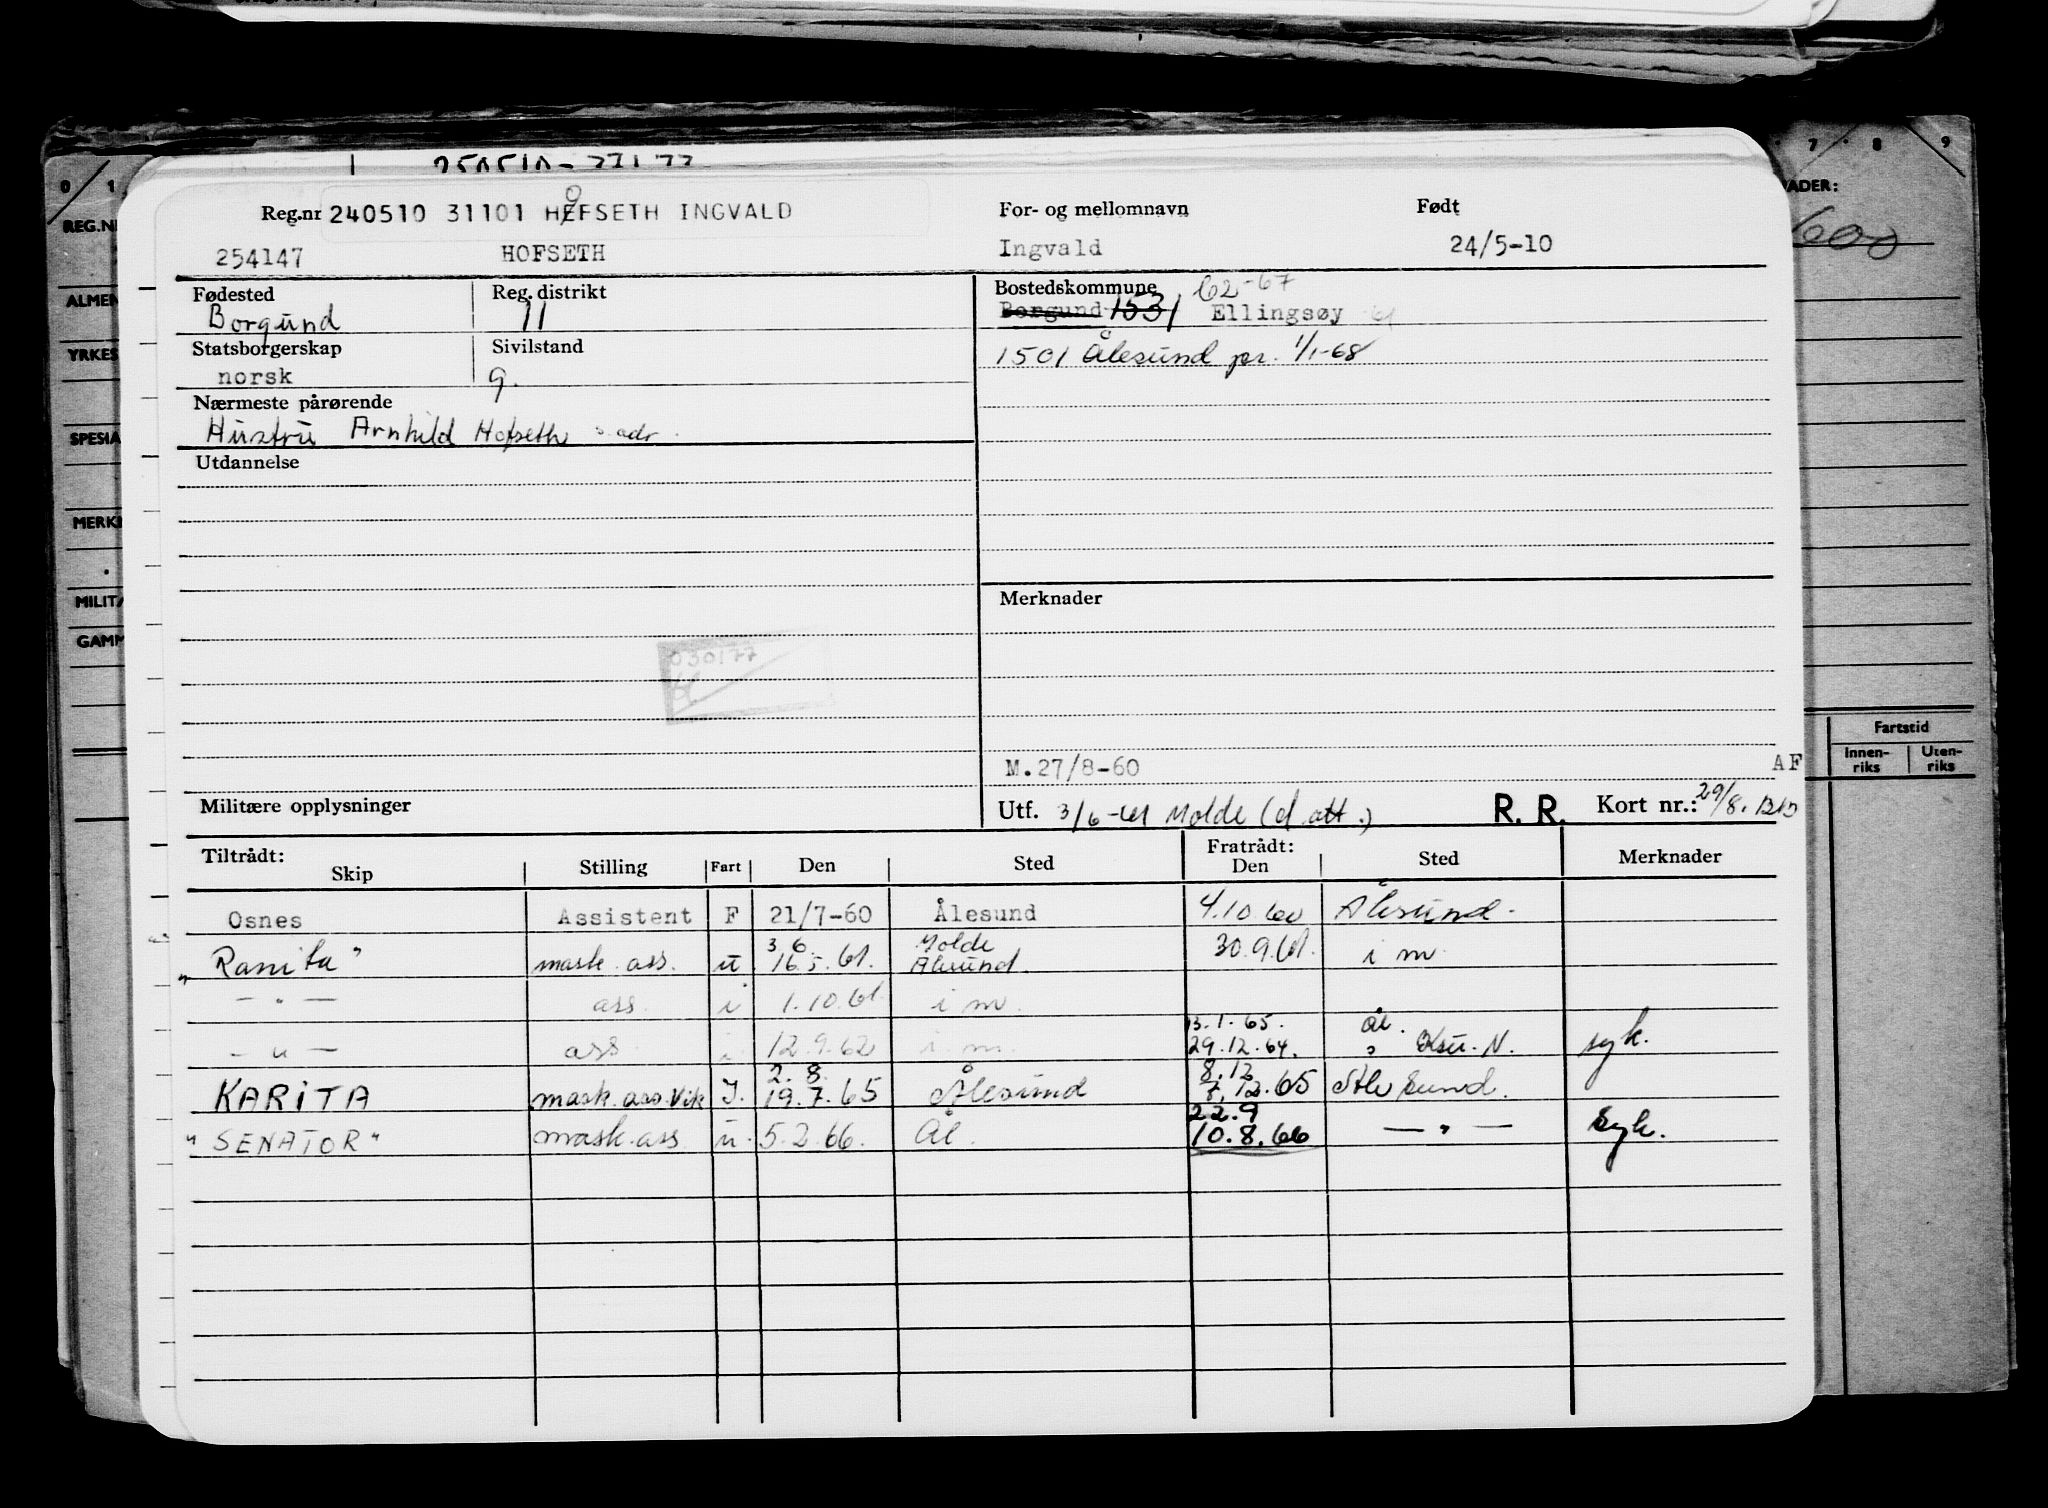 0 1 7 8 9
REG.NR
Reg.nr 240510 31101 HØFSETH INGVALD For- og mellomnavn Født
o
254147 HOFSETH Ingvald 24/5-10
600
ALMEN
Fødested Reg. distrikt Bostedskommune 62-67
Borgund 11 Borgund 1531 Ellingsøy 61
YRKES
Statsborgerskap Sivilstand 1501 Ålesund pr. 1/1-68
norsk g.
Nærmeste pårørende
Hustru Arnhild Hofseth s. adr.
SPESIA
Utdannelse
MERK
MILIT
Merknader
GAMM
030177
Fartstid
Innen-riks Uten-riks
M.27/8-60 AF
Militære opplysninger Utf. 3/6-61 Molde (d. att.) R. R. Kort nr.: 29/8.
Tiltrådt: Fratrådt:
Skip Stilling Fart Den Sted Den Sted Merknader
Osnes Assistent F 21/7-60 Ålesund 4.10.60 Ålesund.
3.6. Molde
"Ranita" mask. ass. u 16.5.61. Ålesund 30.9.61. i m.
— " — ass. i 1.10.61. i m.
13.1.65. Ål.
— " — ass. i 12.9.62 i m. 29.12.64. " Ksu. N. syk.
2.8. 8.12
KARITA mask. ass. Vik I. 19.7.65 Ålesund 7.12.65 Ålesund.
22.9
"SENATOR" mask. ass u. 5.2.66. Ål. 10.8.66 — " — syk.